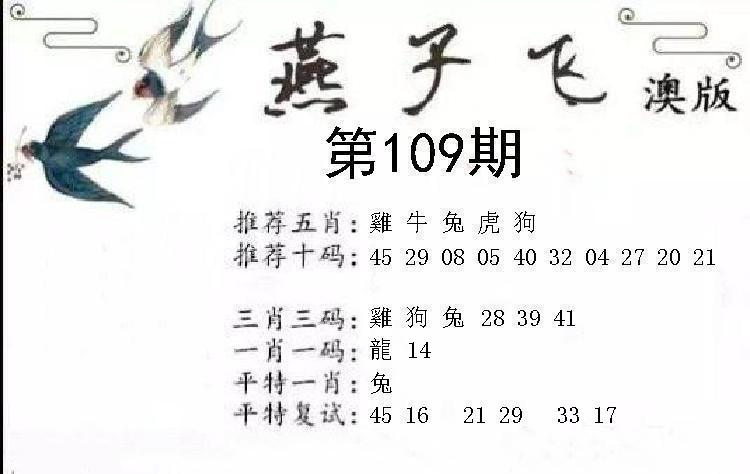 燕子飞 澳版
第109期
推荐五肖: 雞 牛 兔 虎 狗
推荐十码: 45 29 08 05 40 32 04 27 20 21
三肖三码: 雞 狗 兔 28 39 41
一肖一码: 龍 14
平特一肖: 兔
平特复试: 45 16 21 29 33 17